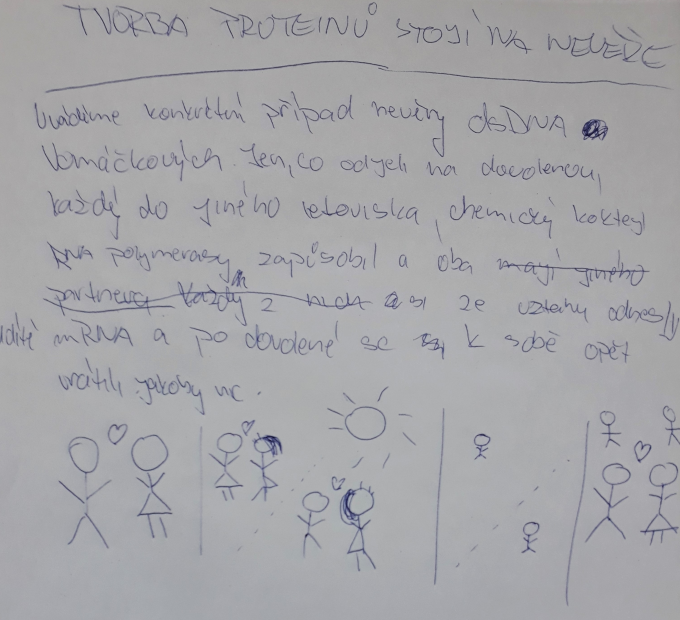 TVORBA PROTEINŮ STOJÍ NA NEVĚŘE
Uvádíme konkrétní případ nevěry dsDNA
Vomáčkových. Jen, co odjeli na dovolenou,
každý do jiného letoviska, chemický koktejl
RNA polymerasy zapůsobil a oba mají jiného
partnera každý z nich si ze vztahu odnesly
dítě mRNA a po dovolené se k sobě opět
vrátili jakoby nic.